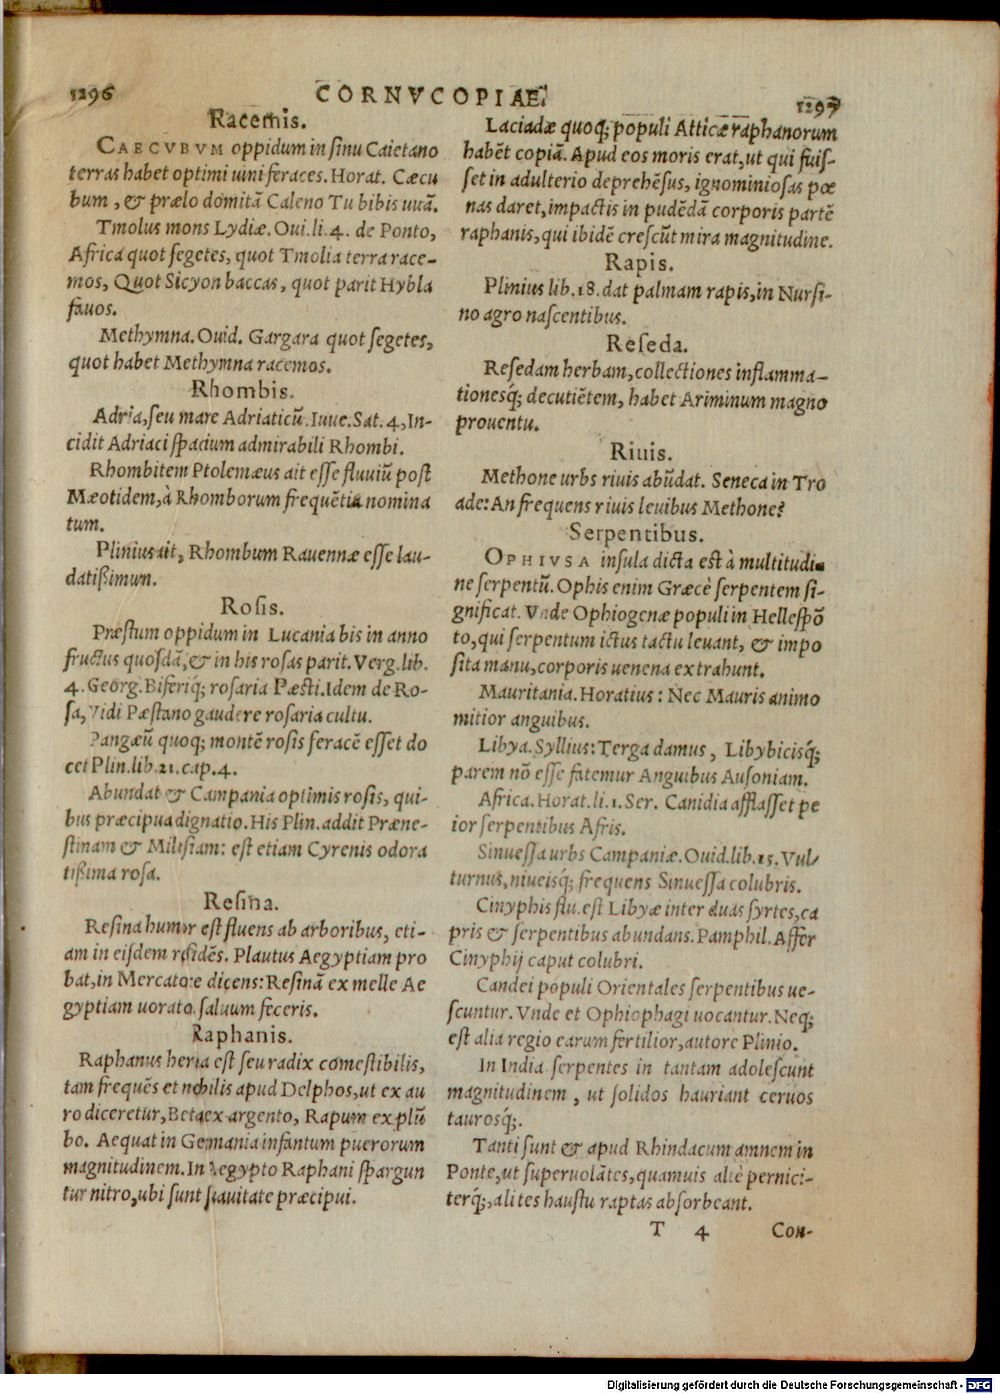 1296
CORNVCOPIAE.
1297
Racemis.
CAECVBVM oppidum in sinu Caietano
terras habet optimi uini feraces. Horat. Cæcu
bum, & prælo domitã Caleno Tu bibis uuã.
Tmolus mons Lydiæ. Oui. li. 4. de Ponto,
Africa quot segetes, quot Tmolia terra race-
mos, Quot Sicyon baccas, quot parit Hybla
fauos.
Methymna. Ouid. Gargara quot segetes,
quot habet Methymna racemos.
Rhombis.
Adria, seu mare Adriaticũ. Iuue. Sat. 4, In-
cidit Adriaci spacium admirabili Rhombi.
Rhombitem Ptolemæus ait esse fluuiũ post
Mæotidem, à Rhomborum frequẽtia nomina
tum.
Plinius ait, Rhombum Rauennæ esse lau-
datißimum.
Rosis.
Præstum oppidum in Lucania bis in anno
fructus quosdã, & in his rosas parit. Verg. lib.
4. Georg. Biferiq́; rosaria Pæsti. Idem de Ro-
sa, Vidi Pæstano gaudere rosaria cultu.
Pangæũ quoq; montẽ rosis feracẽ esset do
cet Plin. lib. 21. cap. 4.
Abundat & Campania optimis rosis, qui-
bus præcipua dignatio. His Plin. addit Præne-
stinam & Milesiam: est etiam Cyrenis odora
tißima rosa.
Resina.
Resina humor est fluens ab arboribus, eti-
am in eisdem residẽs. Plautus Aegyptiam pro
bat, in Mercatore dicens: Resinã ex melle Ae
gyptiam uorato saluum feceris.
Raphanis.
Raphanus herba est seu radix comestibilis,
tam frequẽs et nobilis apud Delphos, ut ex au
ro diceretur, Beta ex argento, Rapum ex plũ
bo. Aequat in Germania infantum puerorum
magnitudinem. In Aegypto Raphani spargun
tur nitro, ubi sunt suauitate præcipui.
Laciadæ quoq; populi Atticæ raphanorum
habẽt copiã. Apud eos moris erat, ut qui fuis-
set in adulterio deprehẽsus, ignominiosas pœ
nas daret, impactis in pudẽdã corporis partẽ
raphanis, qui ibidẽ crescũt mira magnitudine.
Rapis.
Plinius lib. 18. dat palmam rapis, in Nursi-
no agro nascentibus.
Reseda.
Resedam herbam, collectiones inflamma-
tionesq́; decutiẽtem, habet Ariminum magno
prouentu.
Riuis.
Methone urbs riuis abũdat. Seneca in Tro
ade: An frequens riuis leuibus Methone?
Serpentibus.
OPHIVSA insula dicta est à multitudi-
ne serpentũ. Ophis enim Græcè serpentem si-
gnificat. Vnde Ophiogenæ populi in Hellespõ
to, qui serpentum ictus tactu leuant, & impo
sita manu, corporis uenena extrahunt.
Mauritania. Horatius: Nec Mauris animo
mitior anguibus.
Libya. Syllius: Terga damus, Libybicisq́;
parem nõ esse fatemur Anguibus Ausoniam.
Africa. Horat. li. 1. Ser. Canidia afflasset pe
ior serpentibus Afris.
Sinuessa urbs Campaniæ. Ouid. lib. 15. Vul-
turnus, niueisq́; frequens Sinuessa colubris.
Cinyphis flu. est Libyæ inter duas syrtes, ca
pris & serpentibus abundans. Pamphil. Affer
Cinyphij caput colubri.
Candei populi Orientales serpentibus ue-
scuntur. Vnde et Ophiophagi uocantur. Neq;
est alia regio earum fertilior, autore Plinio.
In India serpentes in tantam adolescunt
magnitudinem, ut solidos hauriant ceruos
taurosq́;.
Tanti sunt & apud Rhindacum amnem in
Ponte, ut superuolãtes, quamuis altè pernici-
terq́;, alites haustu raptas absorbeant.
T 4 Con-
Digitalisierung gefördert durch die Deutsche Forschungsgemeinschaft - DFG